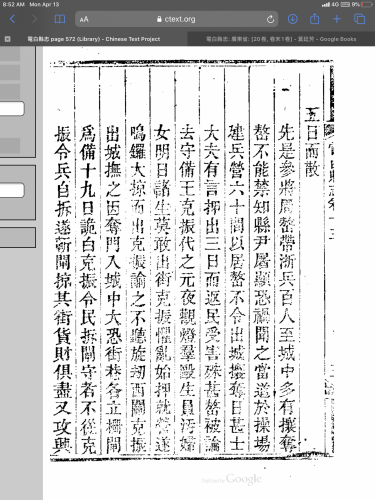 8:52 AM Mon Apr 13
4G 9%
AA
ctext.org
電白縣志 page 572 (Library) - Chinese Text Project
電白縣志: 廣東省: [20卷, 卷末1卷] - 葉廷芳 - Google Books
五日而散
先是參將周嶅帶浙兵百人至城中多有攘奪
嶅不能禁知縣尹屠顯恐禍聞之當道於操場
建兵營六十間以居嶅不令出城攘奪日甚士
大夫有言押出三日而返民受害殊甚嶅被論
去守備王克振代之元夜觀燈羣毆生員污婦
女明日諸生莫敢出街克振懼亂始押就營遂
鳴鑼大掠而出克振諭之不聽旋刧西關克振
出城撫之因奪門入城中大恐街巷各立柵閘
爲備十九日詭白克振令民拆閘守者不從克
振令兵自拆遂斬閘掠其街貨財俱盡又攻興
Digitized by Google